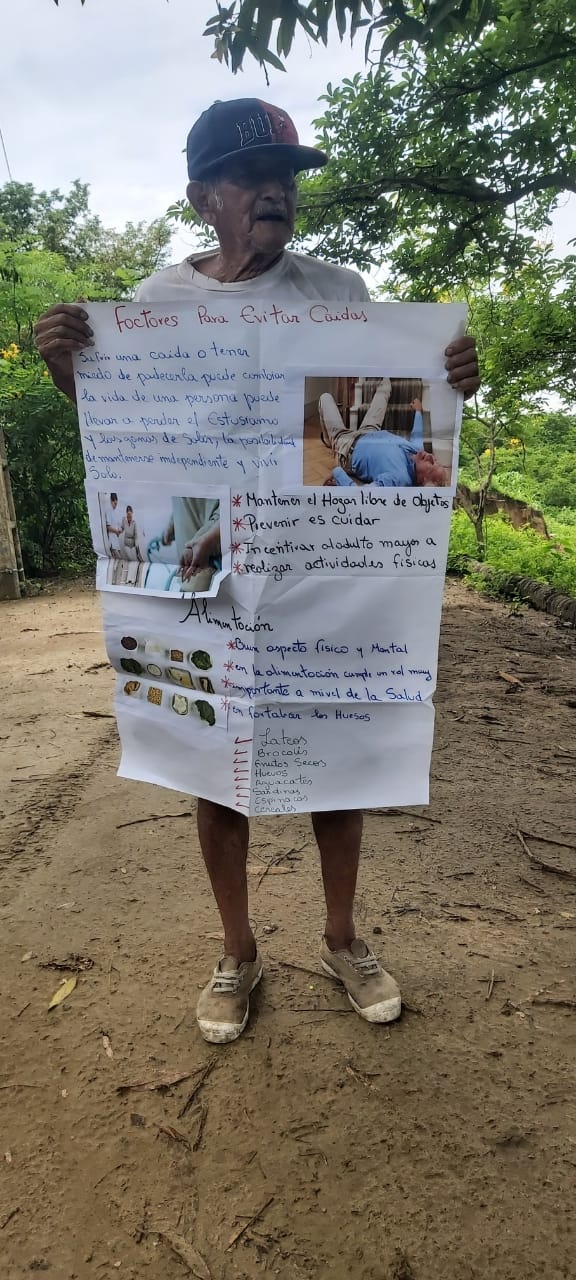 Factores Para Evitar Caidas
Sufrir una caida o tener
miedo de padecerla puede cambiar
la vida de una persona puede
llevar a perder el Estusiamo
y las ganas de Salir, la posibilidad
de mantenerse independiente y vivir
Solo.
* Mantener el Hogar libre de Objetos
* Prevenir es cuidar
* Incentivar al adulto mayor a
* realizar actividades fisicas
Alimentación
* Buen aspecto físico y Mental
* en la alimentación cumple un rol muy
* importante a nivel de la Salud
* en fortalecer los Huesos
Lateos
Brocolis
Frutos Secos
Huevos
Aguacates
Sardinas
Espinacas
Cereales